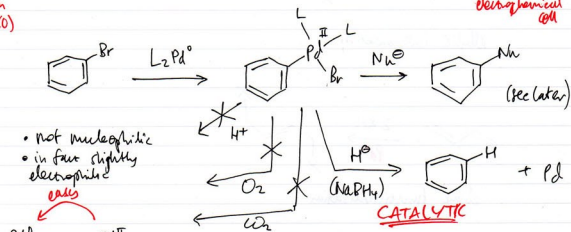 electrochemical
cell
(0)
L
II
L
Br
L₂Pd⁰
Pd
Br
Nu⊖
Nu
(see later)
• not nucleophilic
• in fact slightly
electrophilic
H+
O₂
CO₂
H⊖
(NaBH₄)
H
+ Pd
CATALYTIC
II